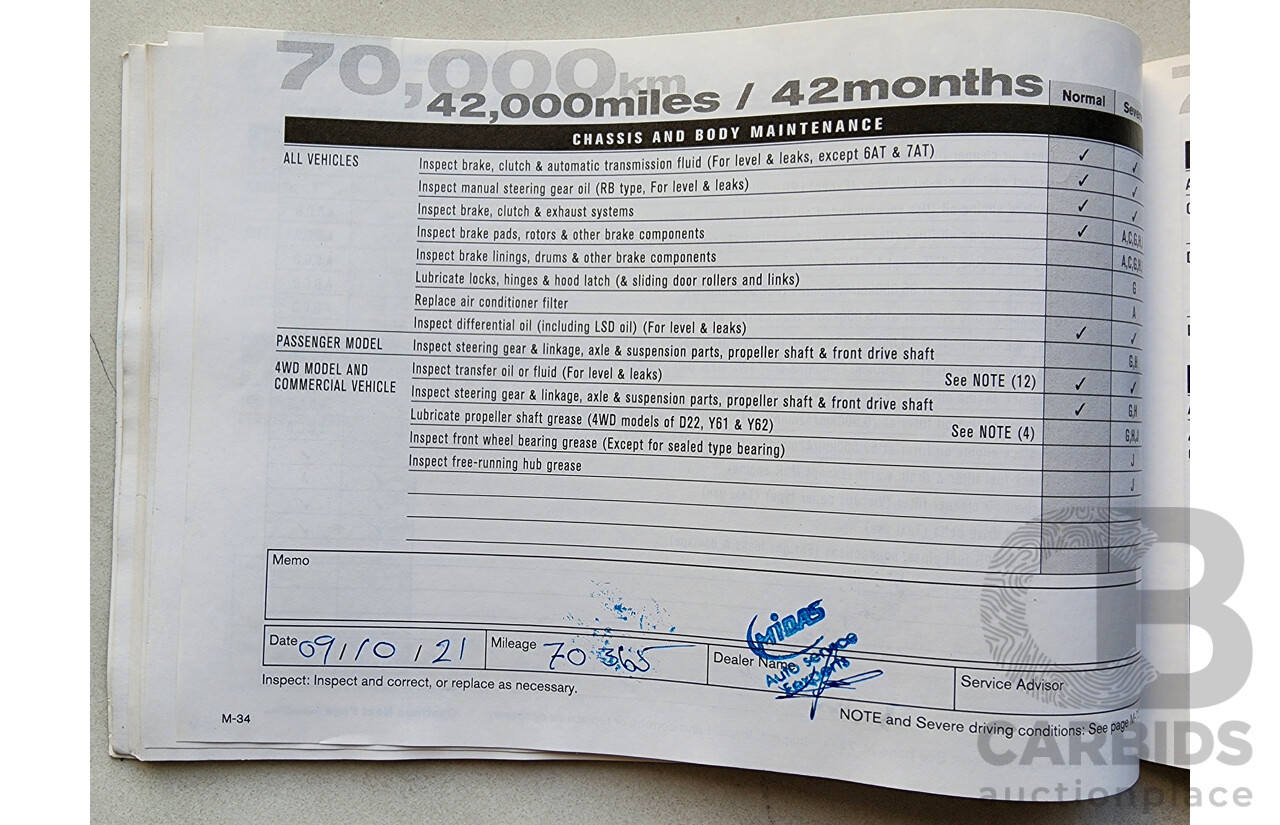 70,000km
42,000miles / 42months
Normal
CHASSIS AND BODY MAINTENANCE
ALL VEHICLES
Inspect brake, clutch & automatic transmission fluid (For level & leaks, except 6AT & 7AT) ✓ ✓
Inspect manual steering gear oil (RB type, For level & leaks) ✓ ✓
Inspect brake, clutch & exhaust systems ✓ ✓
Inspect brake pads, rotors & other brake components ✓ A,C,G,H,
Inspect brake linings, drums & other brake components A,C,G,H,
Lubricate locks, hinges & hood latch (& sliding door rollers and links) G
Replace air conditioner filter A
Inspect differential oil (including LSD oil) (For level & leaks) ✓ ✓
PASSENGER MODEL Inspect steering gear & linkage, axle & suspension parts, propeller shaft & front drive shaft G,H
4WD MODEL AND
COMMERCIAL VEHICLE
Inspect transfer oil or fluid (For level & leaks) See NOTE (12) ✓ ✓
Inspect steering gear & linkage, axle & suspension parts, propeller shaft & front drive shaft ✓ G,H
Lubricate propeller shaft grease (4WD models of D22, Y61 & Y62) See NOTE (4) G,H,J
Inspect front wheel bearing grease (Except for sealed type bearing) J
Inspect free-running hub grease J
Memo
Date 09/10/21
Mileage 70365
Dealer Name
MIDAS
Auto Service
Experts
Service Advisor
Inspect: Inspect and correct, or replace as necessary.
M-34
NOTE and Severe driving conditions: See page
CB
CARBIDS
auctionplace